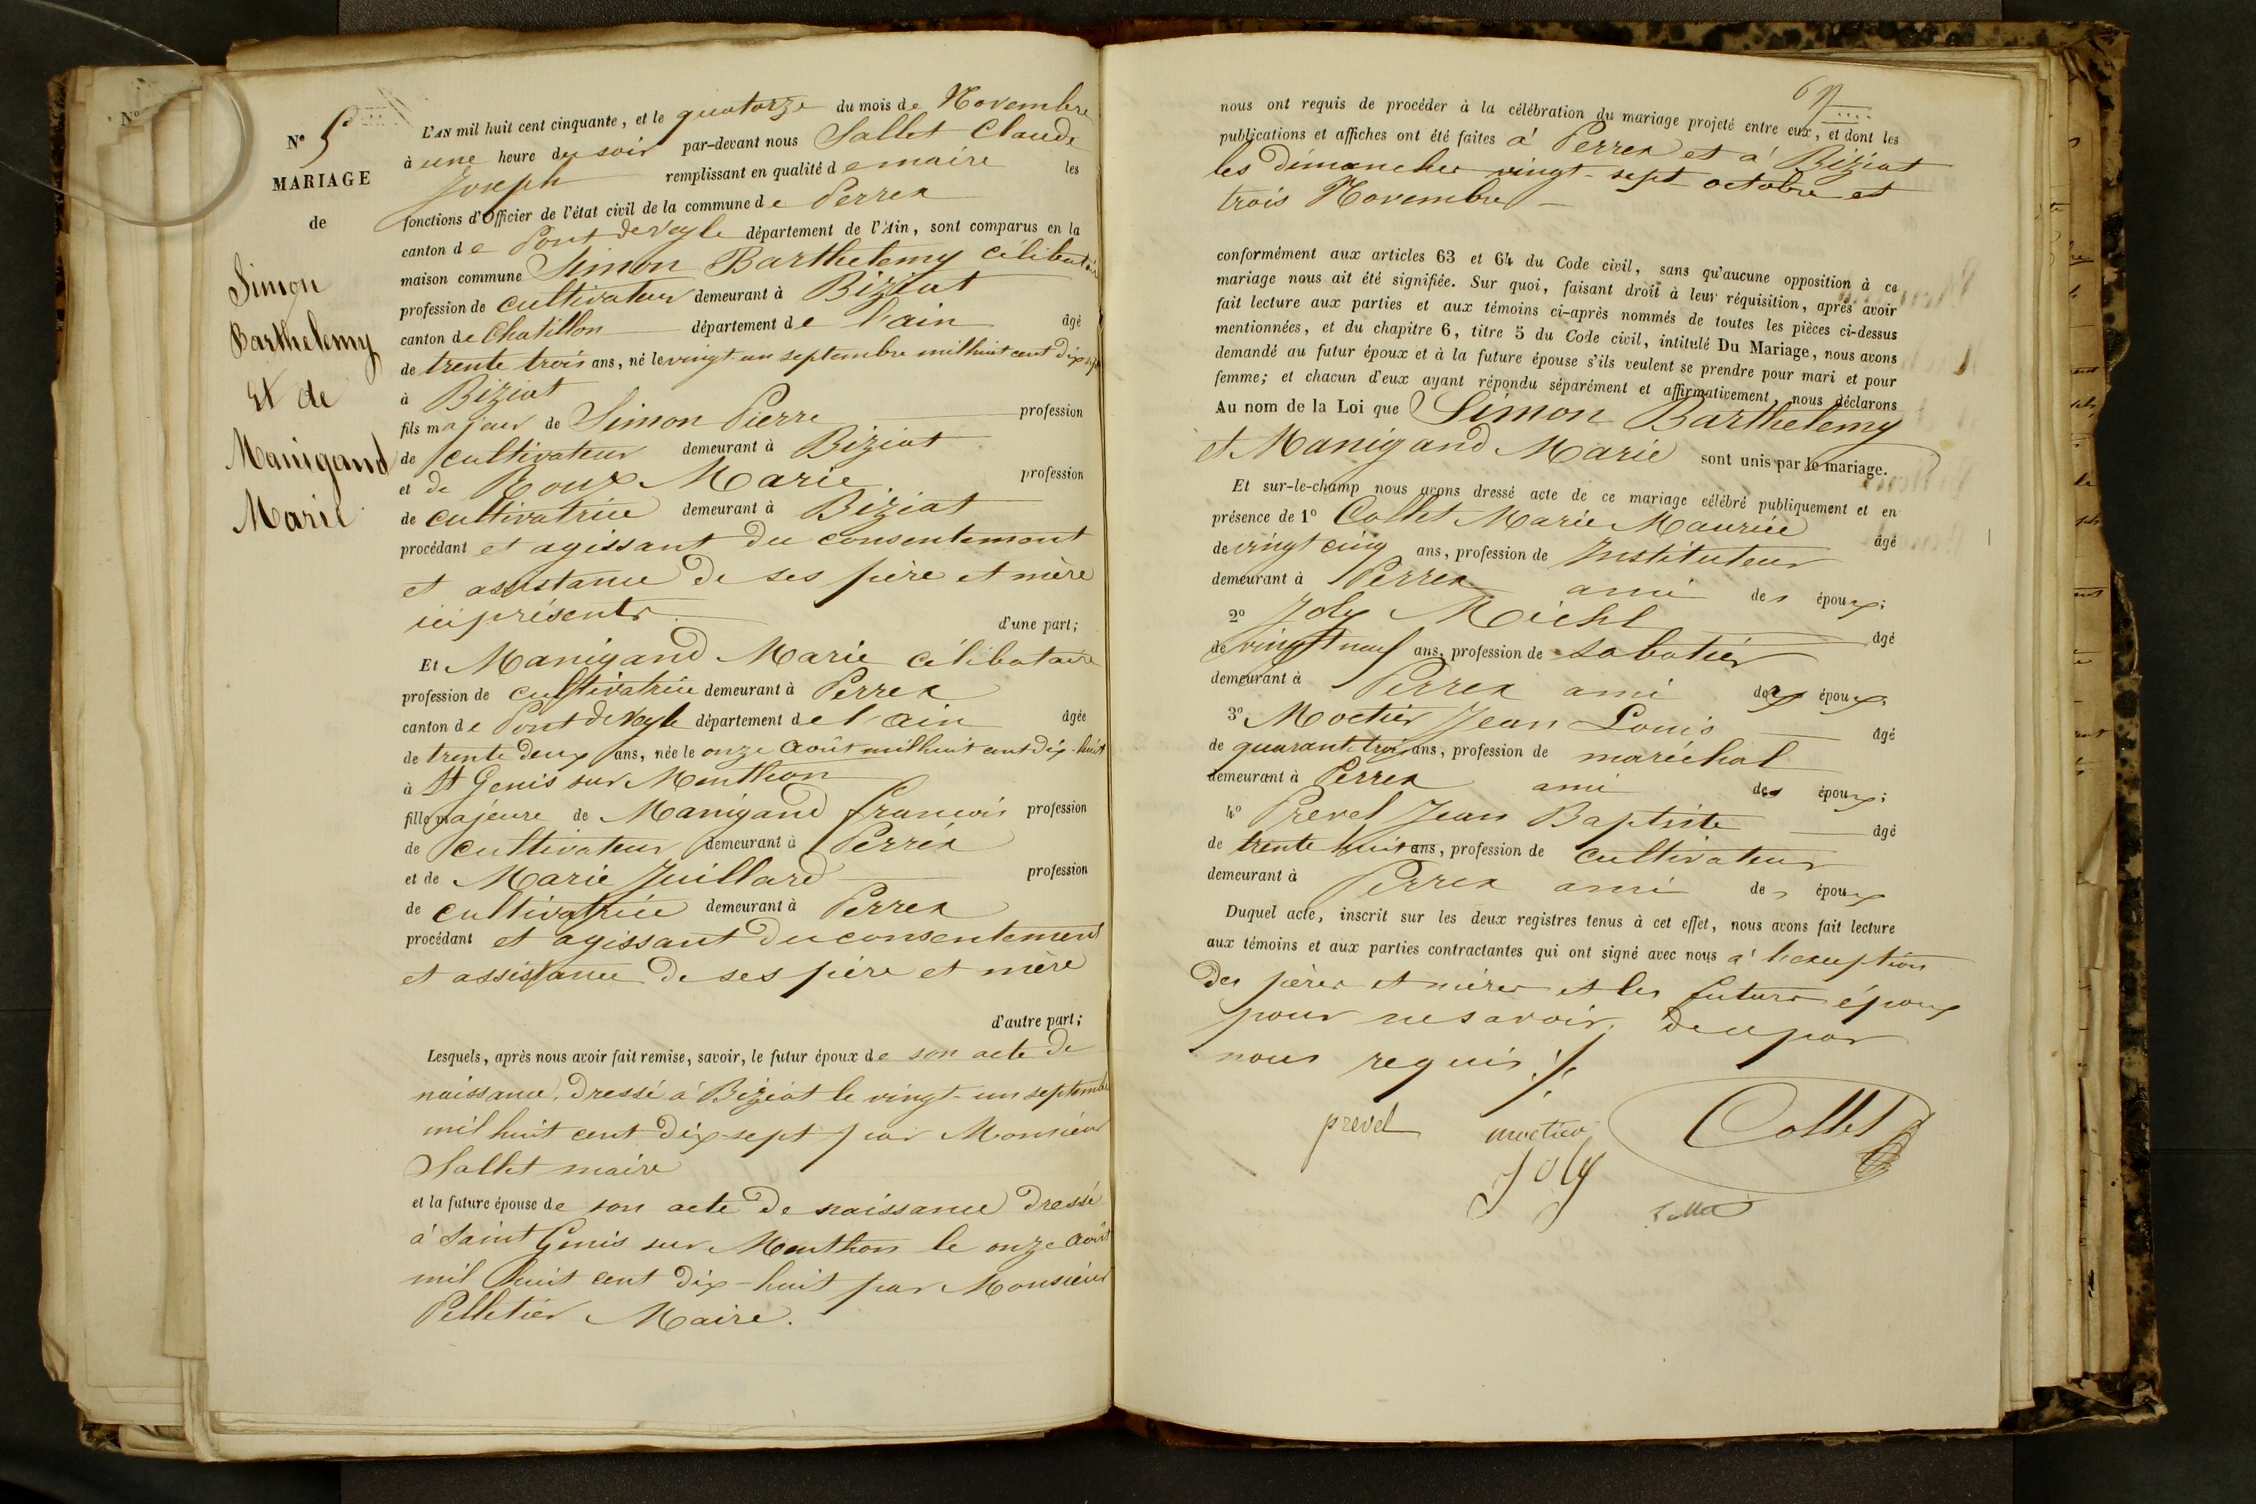 N° 5
MARIAGE
de
Simon
Barthelemy
Et de
Manigand
Marie
L'AN mil huit cent cinquante, et le quatorze du mois de Novembre
à une heure du soir par-devant nous Sallet Claude
Joseph remplissant en qualité de maire les
fonctions d'Officier de l'état civil de la commune de Perrex
canton de Pont de Veyle département de l'Ain, sont comparus en la
maison commune Simon Barthelemy célibataire
profession de cultivateur demeurant à Biziat
canton de Chatillon département de l'ain âgé
de trente trois ans, né le vingt-un septembre mil huit cent dix sept
à Biziat
fils majeur de Simon Pierre profession
de cultivateur demeurant à Biziat
et de Roux Marie profession
de cultivatrice demeurant à Biziat
procédant et agissant du consentement
et assistance de ses père et mère
ici présents d'une part;
Et Manigand Marie célibataire
profession de cultivatrice demeurant à Perrex
canton de Pont de Veyle département de l'ain âgée
de trente deux ans, née le onze Août mil huit cent dix-huit
à St Genis sur Menthon
fille majeure de Manigand francois profession
de cultivateur demeurant à Perréx
et de Marie Juillard profession
de cultivatrice demeurant à Perrex
procédant et agissant du consentement
et assistance de ses père et mère
d'autre part;
Lesquels, après nous avoir fait remise, savoir, le futur époux de son acte de
naissance, dressé à Biziat le vingt-un septembre
mil huit cent dix-sept par Monsieur
Sallet maire
et la future épouse de son acte de naissance dressé
à Saint Genis sur Menthon le onze Août
mil huit cent dix-huit par Monsieur
Pelletier Maire.
nous ont requis de procéder à la célébration du mariage projeté entre eux, et dont les
publications et affiches ont été faites à Perrex et à Biziat
les dimanches vingt-sept octobre et
trois Novembre
conformément aux articles 63 et 64 du Code civil, sans qu'aucune opposition à ce
mariage nous ait été signifiée. Sur quoi, faisant droit à leur réquisition, après avoir
fait lecture aux parties et aux témoins ci-après nommés de toutes les pièces ci-dessus
mentionnées, et du chapitre 6, titre 5 du Code civil, intitulé Du Mariage, nous avons
demandé au futur époux et à la future épouse s'ils veulent se prendre pour mari et pour
femme; et chacun d'eux ayant répondu séparément et affirmativement, nous déclarons
Au nom de la Loi que Simon Barthelemy
et Manigand Marie sont unis par le mariage.
Et sur-le-champ nous avons dressé acte de ce mariage célébré publiquement et en
présence de 1° Collet Marie Maurice âgé
de vingt cinq ans, profession de Instituteur
demeurant à Perrex ami des époux;
2° Joly Michl âgé
de vingt neuf ans, profession de sabotier
demeurant à Perrex ami des époux.
3° Moctier Jean Louis âgé
de quarante trois ans, profession de maréchal
demeurant à Perrex ami des époux;
4° Prevel Jean Baptiste âgé
de trente huit ans, profession de cultivateur
demeurant à Perrex ami des époux
Duquel acte, inscrit sur les deux registres tenus à cet effet, nous avons fait lecture
aux témoins et aux parties contractantes qui ont signé avec nous à l'exception
des pères et mères et les futurs époux
pour ne savoir, de ce par
nous requis ./.
prevel moctier Collet
Joly